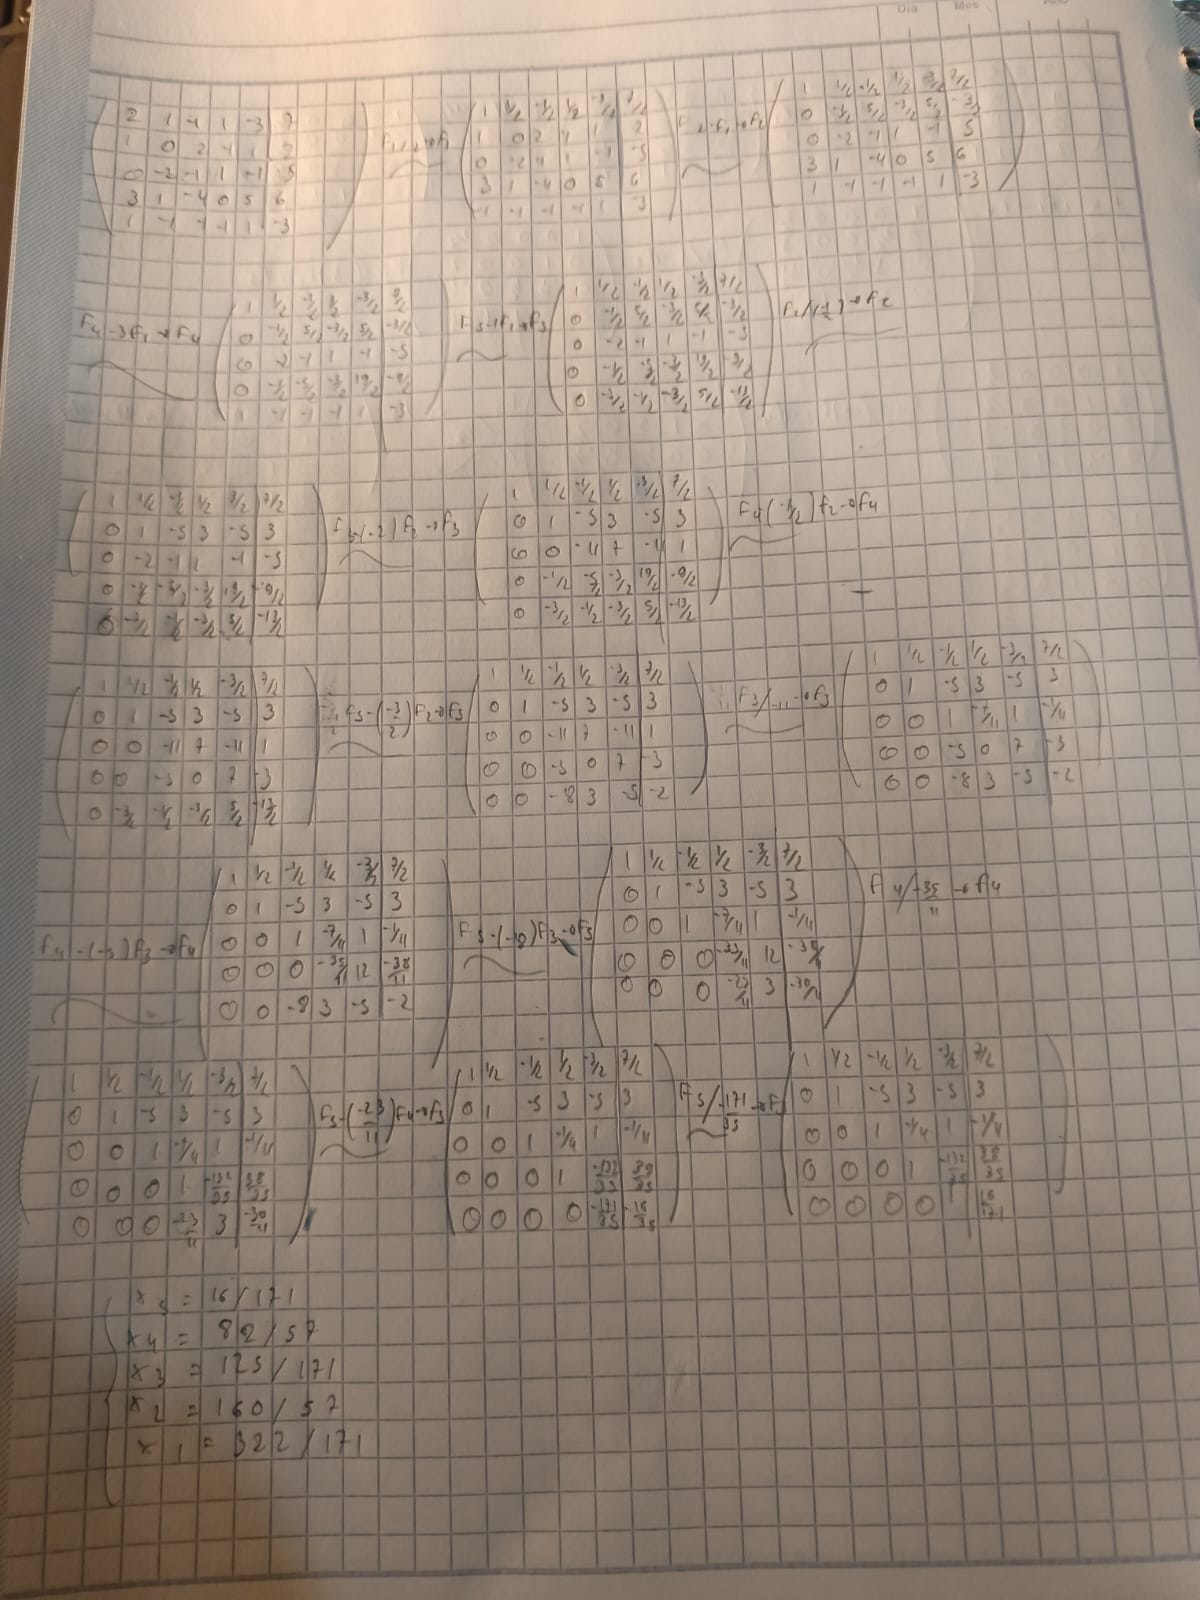 Dia Mes
2 1 -1 1 -3 7
1 0 2 -1 1 2
0 -2 -1 1 -1 -5
3 1 -4 0 5 6
1 -1 -1 -1 1 -3
F1/2→F1
1 1/2 -1/2 1/2 -3/2 7/2
1 0 2 -1 1 2
0 -2 -1 1 -1 -5
3 1 -4 0 5 6
1 -1 -1 -1 1 -3
F2-F1→F2
1 1/2 -1/2 1/2 -3/2 7/2
0 -1/2 5/2 -3/2 5/2 -3/2
0 -2 -1 1 -1 5
3 1 -4 0 5 6
1 -1 -1 -1 1 -3
F4-3F1→F4
1 1/2 -1/2 1/2 -3/2 7/2
0 -1/2 5/2 -3/2 5/2 -3/2
0 -2 -1 1 -1 -5
0 -1/2 -5/2 -3/2 19/2 -9/2
1 -1 -1 -1 1 -3
F5-1F1→F5
1 1/2 -1/2 1/2 -3/2 7/2
0 -1/2 5/2 -3/2 5/2 -3/2
0 -2 -1 1 -1 -5
0 -1/2 -5/2 -3/2 19/2 -9/2
0 -3/2 -1/2 -3/2 5/2 -13/2
F2/(-1/2)→F2
1 1/2 -1/2 1/2 -3/2 7/2
0 1 -5 3 -5 3
0 -2 -1 1 -1 -5
0 -1/2 -5/2 -3/2 19/2 -9/2
0 -3/2 -1/2 -3/2 5/2 -13/2
F3-(-2)F2→F3
1 1/2 -1/2 1/2 -3/2 7/2
0 1 -5 3 -5 3
0 0 -11 7 -11 1
0 -1/2 -5/2 -3/2 19/2 -9/2
0 -3/2 -1/2 -3/2 5/2 -13/2
F4(-1/2)F2→F4
1 1/2 -1/2 1/2 -3/2 7/2
0 1 -5 3 -5 3
0 0 -11 7 -11 1
0 0 -5 0 7 -3
0 -3/2 -1/2 -3/2 5/2 -13/2
F5-(-3/2)F2→F5
1 1/2 -1/2 1/2 -3/2 7/2
0 1 -5 3 -5 3
0 0 -11 7 -11 1
0 0 -5 0 7 -3
0 0 -8 3 -5 -2
F3/-11→F3
1 1/2 -1/2 1/2 -3/2 7/2
0 1 -5 3 -5 3
0 0 1 -7/11 1 -1/11
0 0 -5 0 7 -3
0 0 -8 3 -5 -2
F4-(-5)F3→F4
1 1/2 -1/2 1/2 -3/2 7/2
0 1 -5 3 -5 3
0 0 1 -7/11 1 -1/11
0 0 0 -35/11 12 -38/11
0 0 -8 3 -5 -2
F5-(-8)F3→F5
1 1/2 -1/2 1/2 -3/2 7/2
0 1 -5 3 -5 3
0 0 1 -7/11 1 -1/11
0 0 0 -35/11 12 -38/11
0 0 0 -23/11 3 -30/11
F4/-35/11→F4
1 1/2 -1/2 1/2 -3/2 7/2
0 1 -5 3 -5 3
0 0 1 -7/11 1 -1/11
0 0 0 1 -132/35 38/35
0 0 0 -23/11 3 -30/11
F5-(-23/11)F4→F5
1 1/2 -1/2 1/2 -3/2 7/2
0 1 -5 3 -5 3
0 0 1 -7/11 1 -1/11
0 0 0 1 -132/35 38/35
0 0 0 0 -171/35 -16/35
F5/-171/35→F5
1 1/2 -1/2 1/2 -3/2 7/2
0 1 -5 3 -5 3
0 0 1 -7/11 1 -1/11
0 0 0 1 -132/35 38/35
0 0 0 0 1 16/171
x5 = 16/171
x4 = 82/57
x3 = 125/171
x2 = 160/57
x1 = 322/171